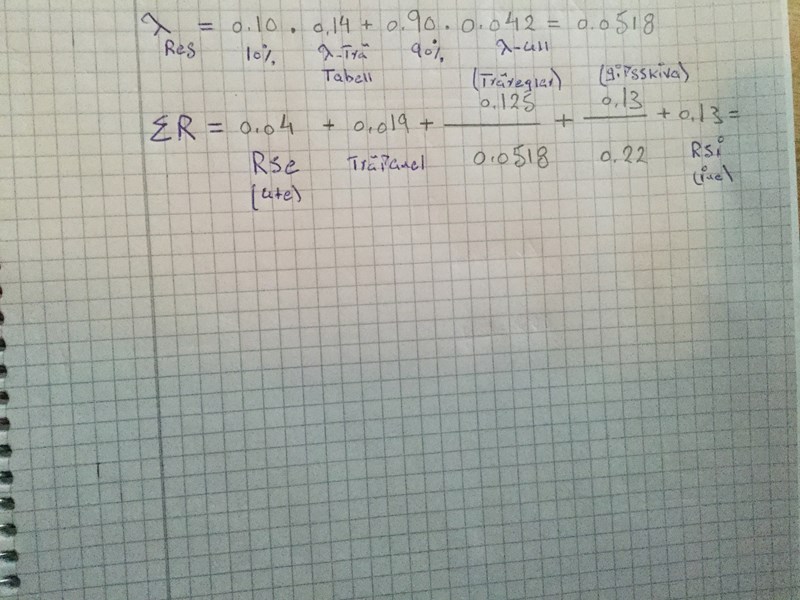 λ = 0.10 · 0,14 + 0.90 · 0.042 = 0.0518
Res 10% λ-Trä 90% λ-ull
Tabell
(Träreglar) (gipsskiva)
ΣR = 0.04 + 0.019 + 0.125/0.0518 + 0.13/0.22 + 0.13 =
Rse TräPanel Rsi
(ute) (ine)